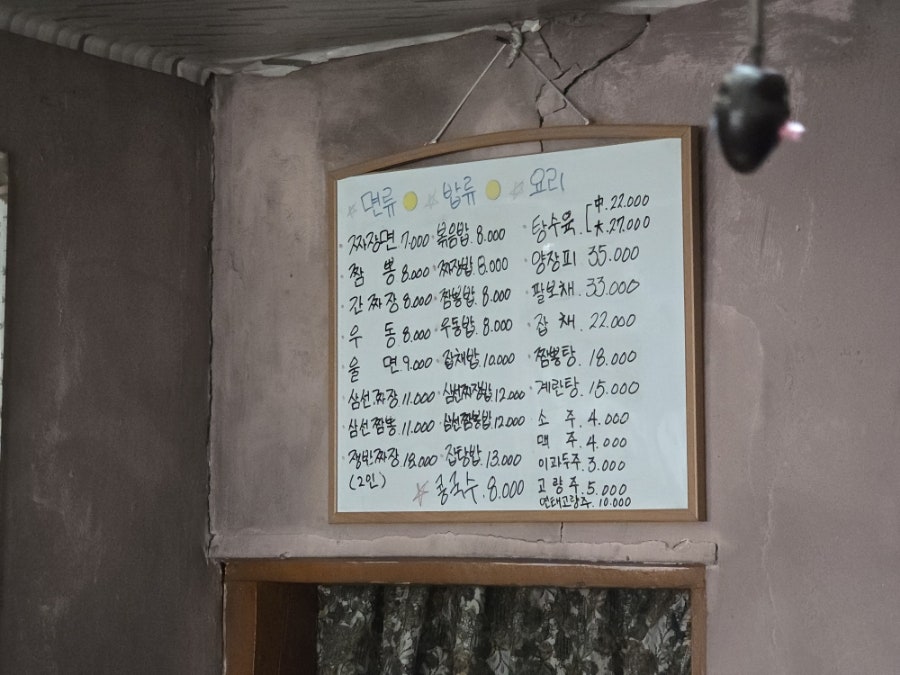 면류 밥류 요리
짜장면 7.000
짬 뽕 8.000
간짜장 8.000
우 동 8.000
울 면 9.000
삼선짜장 11.000
삼선짬뽕 11.000
쟁반짜장 18.000
(2인)
볶음밥. 8.000
짜장밥 8.000
짬뽕밥. 8.000
우동밥. 8.000
잡채밥. 10.000
삼선짜장밥. 12.000
삼선짬뽕밥. 12.000
잡탕밥. 13.000
콩국수. 8.000
탕수육. [中. 22.000
大. 27.000
양장피 35.000
팔보채. 33.000
잡 채. 22.000
짬뽕탕. 18.000
계란탕. 15.000
소 주. 4.000
맥 주. 4.000
이과두주. 3.000
고 량 주. 5.000
연태고량주. 10.000